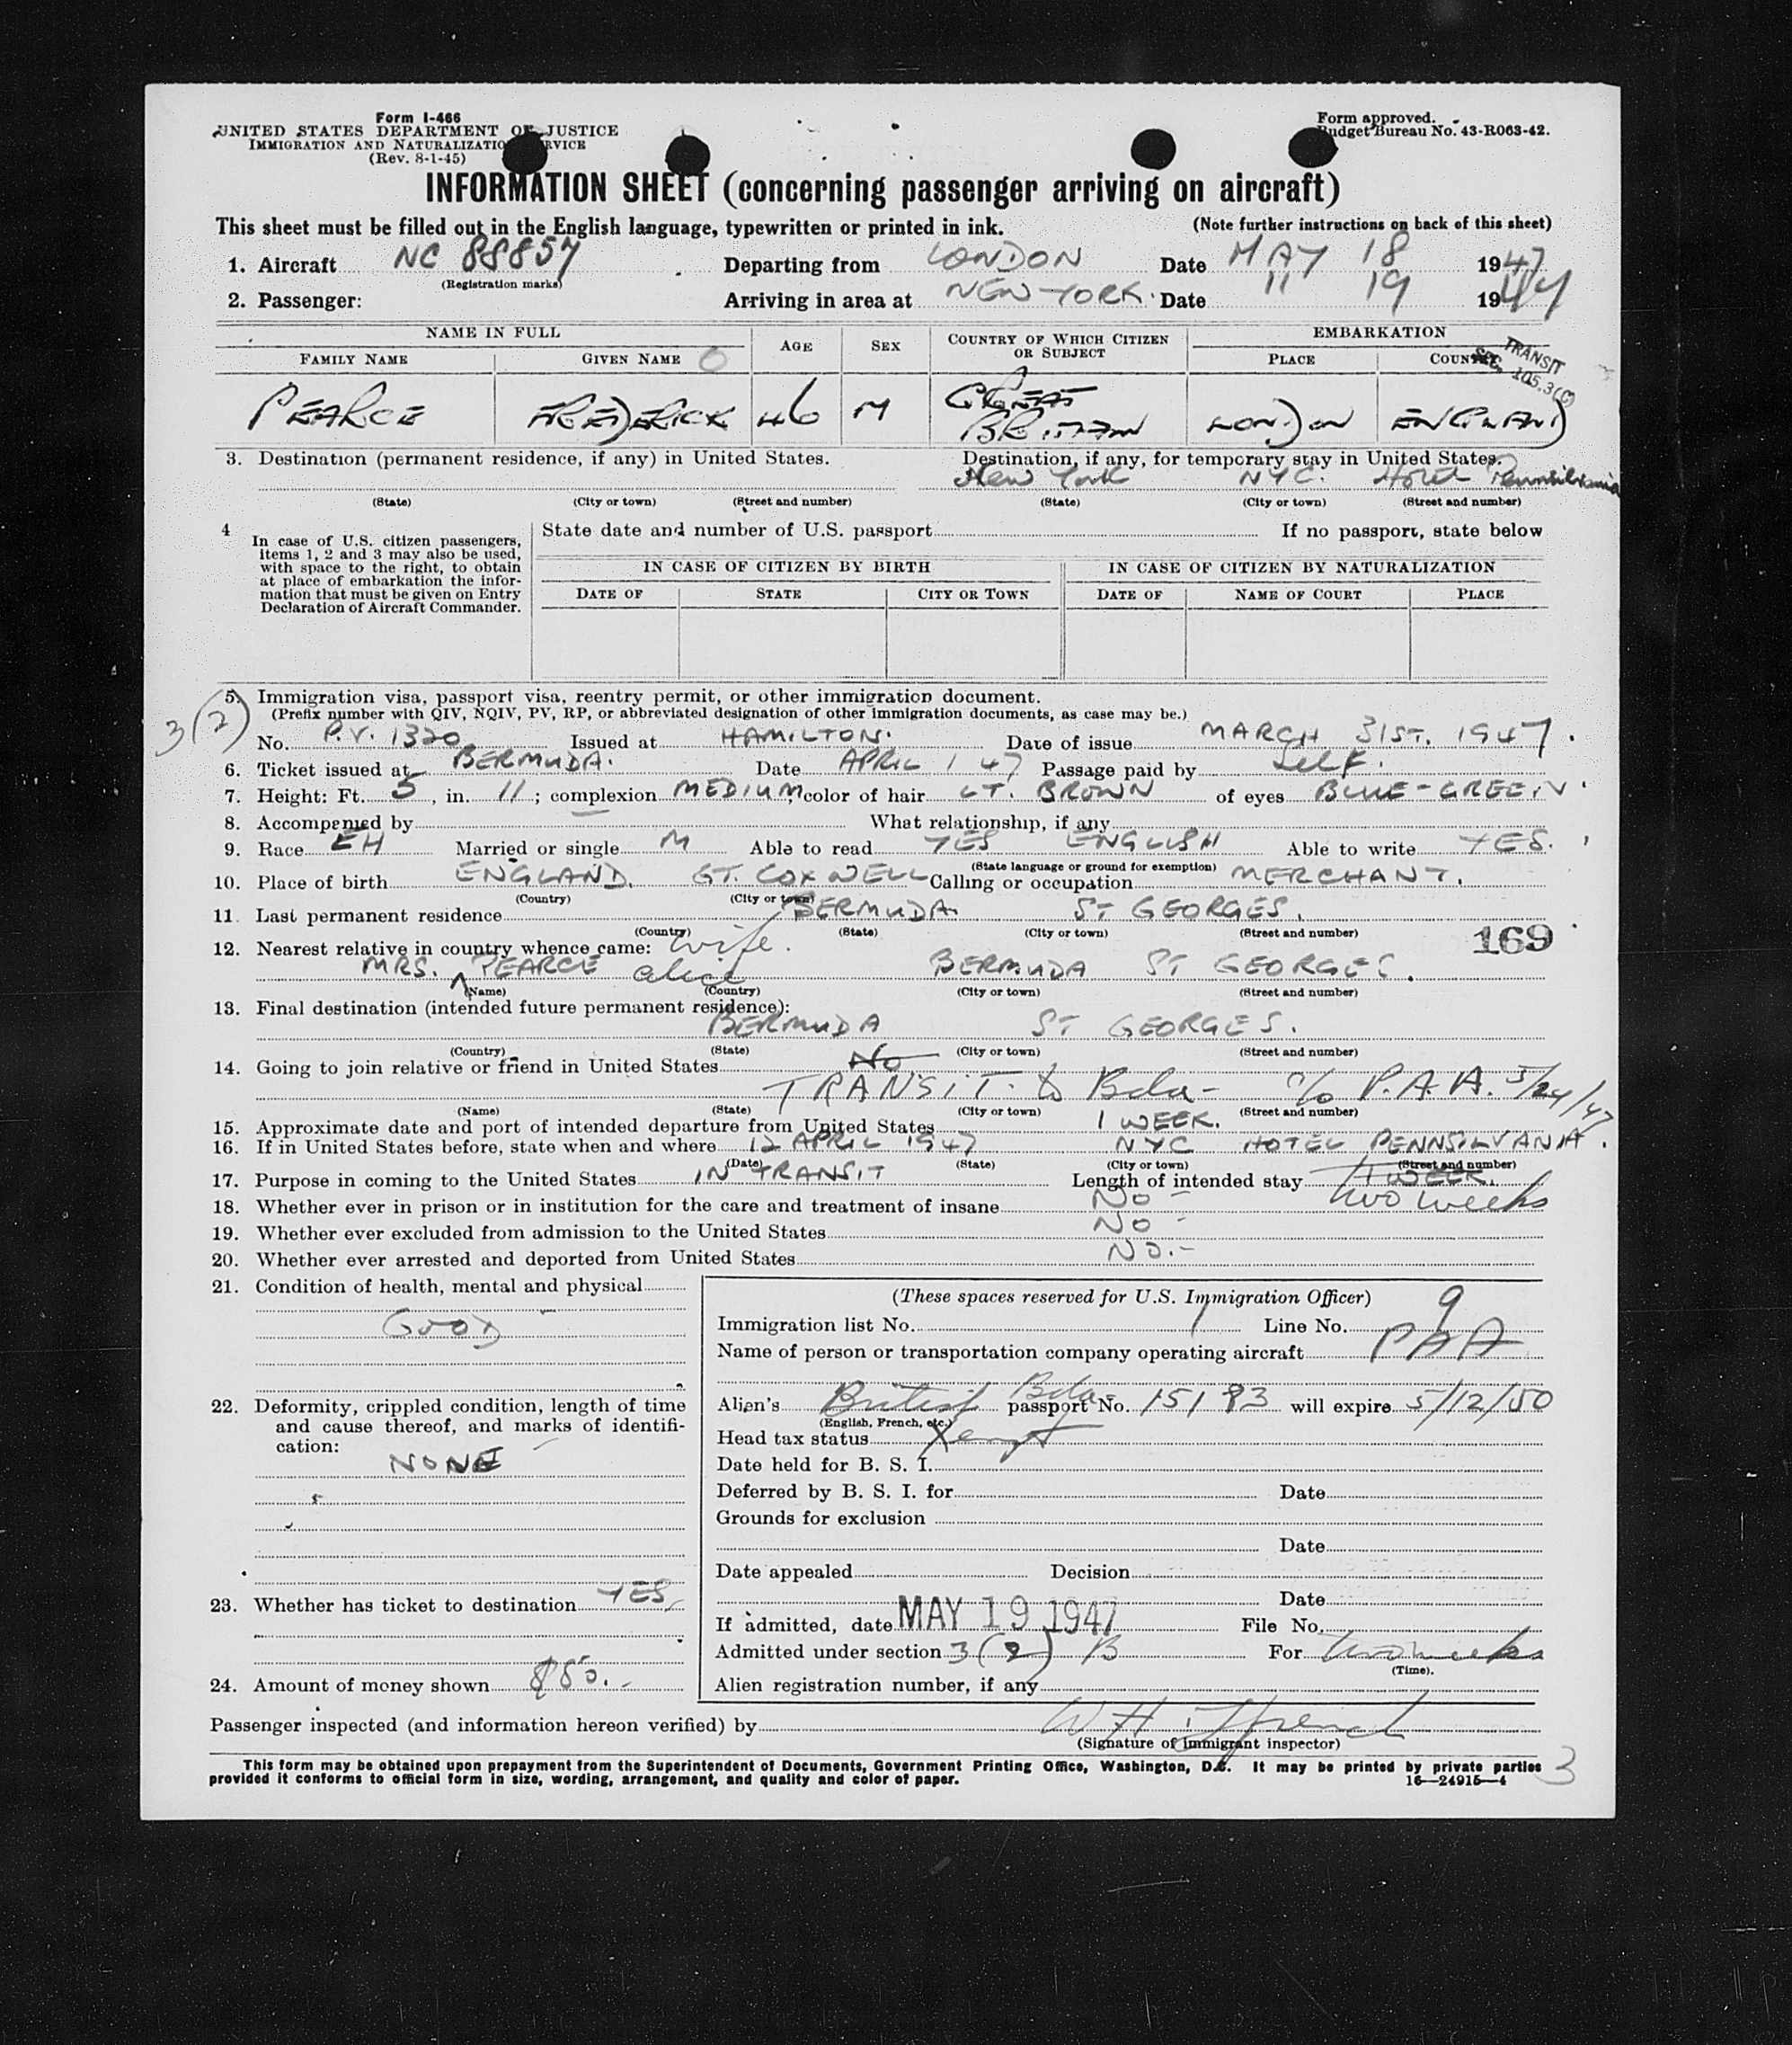 Form I-466
UNITED STATES DEPARTMENT OF JUSTICE
IMMIGRATION AND NATURALIZATION SERVICE
(Rev. 8-1-45)
Form approved.
Budget Bureau No. 43-R063-42.
INFORMATION SHEET (concerning passenger arriving on aircraft)
This sheet must be filled out in the English language, typewritten or printed in ink. (Note further instructions on back of this sheet)
1. Aircraft NC 88857 Departing from LONDON Date MAY 18 1947
(Registration marks)
2. Passenger: Arriving in area at NEW YORK. Date " 19 1947
NAME IN FULL AGE SEX COUNTRY OF WHICH CITIZEN OR SUBJECT EMBARKATION
FAMILY NAME GIVEN NAME PLACE COUNTRY
TRANSIT
SEC. 105.3(C)
PEARCE FREDERICK 46 M GREAT BRITAIN LONDON ENGLAND
3. Destination (permanent residence, if any) in United States. Destination, if any, for temporary stay in United States.
New York NYC. Hotel Pennsilvania
(State) (City or town) (Street and number) (State) (City or town) (Street and number)
4 In case of U.S. citizen passengers, items 1, 2 and 3 may also be used, with space to the right, to obtain at place of embarkation the information that must be given on Entry Declaration of Aircraft Commander.
State date and number of U.S. passport If no passport, state below
IN CASE OF CITIZEN BY BIRTH IN CASE OF CITIZEN BY NATURALIZATION
DATE OF STATE CITY OR TOWN DATE OF NAME OF COURT PLACE
3(2)
5. Immigration visa, passport visa, reentry permit, or other immigration document.
(Prefix number with QIV, NQIV, PV, RP, or abbreviated designation of other immigration documents, as case may be.)
No. P.V. 1320 Issued at HAMILTON. Date of issue MARCH 31ST. 1947.
6. Ticket issued at BERMUDA. Date APRIL 1 47 Passage paid by Self.
7. Height: Ft. 5, in. 11; complexion MEDIUM; color of hair LT. BROWN of eyes BLUE-GREEN.
8. Accompanied by — What relationship, if any
9. Race EH Married or single M Able to read YES ENGLISH Able to write YES.
(State language or ground for exemption)
10. Place of birth ENGLAND. GT. COXWELL Calling or occupation MERCHANT.
(Country) (City or town)
11. Last permanent residence BERMUDA ST GEORGES.
(Country) (State) (City or town) (Street and number)
169
12. Nearest relative in country whence came: wife.
MRS. PEARCE Alice BERMUDA ST GEORGES.
(Name) (Country) (City or town) (Street and number)
13. Final destination (intended future permanent residence):
BERMUDA ST GEORGES.
(Country) (State) (City or town) (Street and number)
14. Going to join relative or friend in United States No
TRANSIT to Bda- c/o P.A.A. 5/24/47
(Name) (State) (City or town) (Street and number)
15. Approximate date and port of intended departure from United States 1 WEEK.
16. If in United States before, state when and where 12 APRIL 1947 NYC HOTEL PENNSILVANIA.
(Date) (State) (City or town) (Street and number)
17. Purpose in coming to the United States IN TRANSIT Length of intended stay 1 WEEK. two weeks
18. Whether ever in prison or in institution for the care and treatment of insane No -
19. Whether ever excluded from admission to the United States No -
20. Whether ever arrested and deported from United States No.-
21. Condition of health, mental and physical
GOOD
22. Deformity, crippled condition, length of time and cause thereof, and marks of identification:
NONE
23. Whether has ticket to destination YES
24. Amount of money shown $50.-
(These spaces reserved for U.S. Immigration Officer)
Immigration list No. 1 Line No. 9
Name of person or transportation company operating aircraft PAA
Alien's British Bda- passport No. 15183 will expire 5/12/50
(English, French, etc.)
Head tax status Xempt
Date held for B. S. I.
Deferred by B. S. I. for Date
Grounds for exclusion
Date
Date appealed Decision
Date
If admitted, date MAY 19 1947 File No.
Admitted under section 3(2) B For two weeks
(Time).
Alien registration number, if any
Passenger inspected (and information hereon verified) by
(Signature of immigrant inspector)
This form may be obtained upon prepayment from the Superintendent of Documents, Government Printing Office, Washington, D.C. It may be printed by private parties
provided it conforms to official form in size, wording, arrangement, and quality and color of paper. 16—24915-4
3